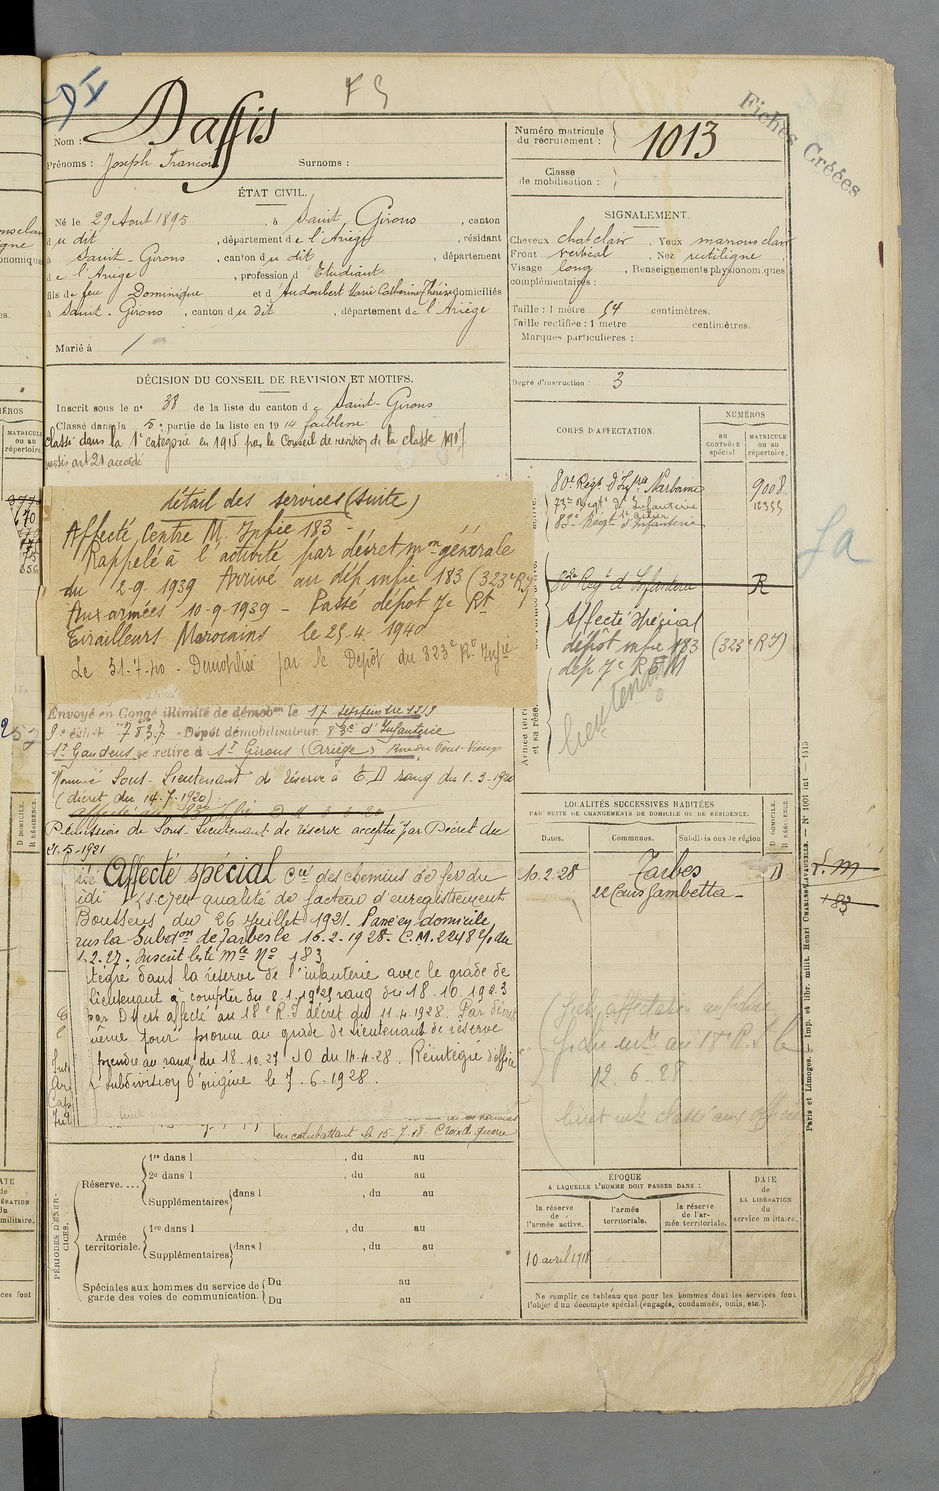 DI
FS
Fiches Créées
Nom : Daffis
Prénoms : Joseph François Surnoms :
Numéro matricule du recrutement : 1013
Classe de mobilisation :
ÉTAT CIVIL.
Né le 29 Aout 1895, à Saint Girons, canton
du dit, département de l'Ariège, résidant
à Saint-Girons, canton du dit, département
de l'Ariège, profession d Etudiant
fils de feu Dominique et d'Audoubert Marie Catherine Thérèse domiciliés
à Saint-Girons, canton du dit, département de l'Ariège
Marié à /
SIGNALEMENT.
Cheveux chat clair. Yeux marrons clair
Front vertical, Nez rectiligne
Visage long, Renseignements physionomiques
complémentaires :
Taille : 1 mètre 54 centimètres.
Taille rectifiée : 1 mètre centimètres.
Marques particulières :
Degré d'instruction : 3
DÉCISION DU CONSEIL DE REVISION ET MOTIFS.
Inscrit sous le n° 38 de la liste du canton de Saint-Girons
Classé dans la 5e partie de la liste en 1914 faiblesse
classé dans la 1e catégorie en 1915 par le Conseil de revision de la classe 1917
sursis art 21 accordé
CORPS D'AFFECTATION.
NUMÉROS
au CONTRÔLE spécial
MATRICULE ou au répertoire.
80e Régt d'Infrie Narbonne 9008
73e Régt d'Infanterie 12355
83e Régt d'Infanterie
83e Regt d'Infanterie R
Affecté spécial
dépôt infie 183 (323e RI)
dép 7e R T M
lieutenant
fa
détail des services (suite)
Affecté Centre M. Infie 183 -
Rappelé à l'activité par décret mon générale
du 2-9-1939 Arrivé au dép infie 183 (323e RI)
Aux armées 10-9-1939 - Passé dépôt 7e Rt
Tirailleurs Marocains le 25-4-1940
Le 31-7-40 - Démobilisé par le Dépôt du 323e Rt Infie
Envoyé en Congé illimité de démobon le 17 septembre 1919
9e échel 7837 - Dépôt démobilisateur 83e d'Infanterie
St Gaudens se retire à St Girons (Ariège) Rue du Pont Vieux
Nommé Sous-Lieutenant de réserve à T.D rang du 1.3.1920
(décret du 14-7-1920)
Démission de Sous-Lieutenant de réserve acceptée par Décret du
21-5-1921
Affecté spécial Cie des chemins de fer du
idi en qualité de facteur d'enregistrement
Boussens du 26 Juillet 1921. Passé en domicile
sur la Subdon de Tarbes le 16.2.1928. C.M. 2248 du
1.2.27. Inscrit liste Mle No 183
tégré dans la réserve de l'infanterie avec le grade de
lieutenant à compter du 8.1.1925 rang du 18.10.1923
par DM est affecté au 18e R.I décret du 11.4.1928. Par décret
même jour promu au grade de lieutenant de réserve
prendre au rang du 18.10.27 JO du 14.4.28. Réintégré d'office
subdivision d'origine le 7.6.1928.
en combattant le 15-7-18. Croix de guerre
LOCALITÉS SUCCESSIVES HABITÉES
PAR SUITE DE CHANGEMENTS DE DOMICILE OU DE RÉSIDENCE.
Dates. Communes. Subdivisions de région D DOMICILE. R RÉSIDENCE.
10.2.28 Tarbes D
22 Cours Gambetta
S.M
183
12.6.28
PÉRIODES D'EXERCICES.
Réserve....
1re dans l , du au
2e dans l , du au
Supplémentaires dans l , du au
du au
Armée territoriale.
1re dans l , du au
Supplémentaires dans l , du au
Spéciales aux hommes du service de garde des voies de communication.
Du au
Du au
ÉPOQUE
A LAQUELLE L'HOMME DOIT PASSER DANS :
la réserve de l'armée active.
l'armée territoriale.
la réserve de l'armée territoriale.
DATE de LA LIBÉRATION du service militaire.
10 avril 1918
Ne remplir ce tableau que pour les hommes dont les services font
l'objet d'un décompte spécial (engagés, condamnés, omis, etc.).
Paris et Limoges. — Imp. et libr. milit. Henri CHARLES-LAVAUZELLE.